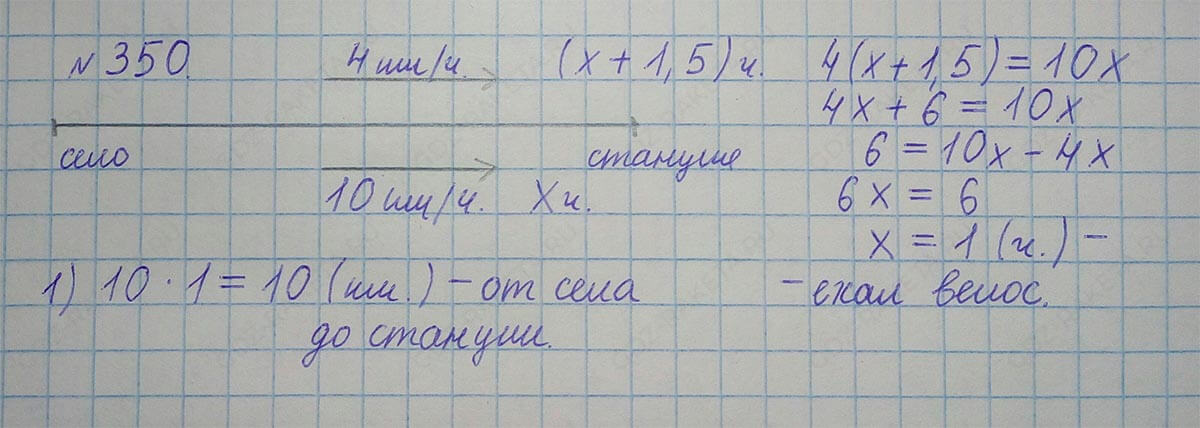 № 350. 4 км/ч. (x + 1,5) ч.
село станция
10 км/ч. X ч.
4(x + 1,5) = 10x
4x + 6 = 10x
6 = 10x - 4x
6x = 6
x = 1 (ч.) -
- ехал велос.
1) 10 · 1 = 10 (км.) - от села
до станции.